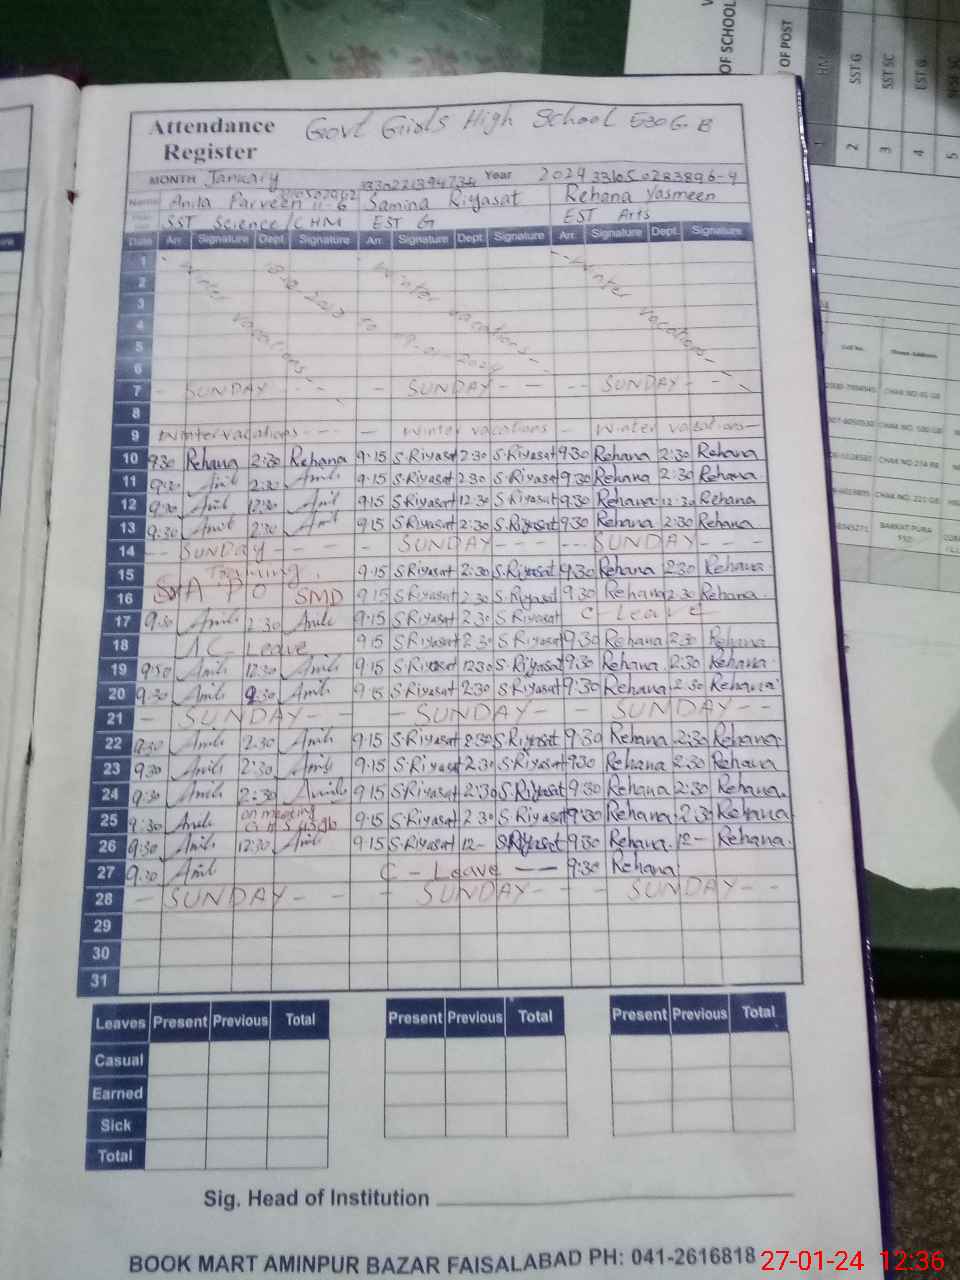 OF SCHOOL
OF POST
HM
SST G
SST SC
EST G
1
2
3
4
5
Attendance Govt Girls High School 530 G B
Register
MONTH January Year 2024 33105 0283896-4
Name Anila Parveen Samina Riyasat Rehana Yasmeen
SST Science/CHM EST G EST Arts
Date Arr. Signature Dept. Signature Arr. Signature Dept. Signature Arr. Signature Dept. Signature
1
2 Winter vacations 18-12-2023 to 09-01-2024 Winter vacations Winter vacations
3
4
5
6
7 SUNDAY SUNDAY SUNDAY
8
9 Winter vacations Winter vacations Winter vacations
10 9:30 Rehana 2:30 Rehana 9-15 S.Riyasat 2:30 S.Riyasat 9:30 Rehana 2:30 Rehana
11 9:30 Anil 2:30 Anil 9-15 S.Riyasat 2:30 S.Riyasat 9:30 Rehana 2:30 Rehana
12 9:30 Anil 12:30 Anil 9-15 S.Riyasat 12:30 S.Riyasat 9:30 Rehana 12:30 Rehana
13 9:30 Anil 2:30 Anil 9-15 S.Riyasat 2:30 S.Riyasat 9:30 Rehana 2:30 Rehana
14 SUNDAY SUNDAY SUNDAY
15 Training 9-15 S.Riyasat 2:30 S.Riyasat 9:30 Rehana 2:30 Rehana
16 SMD 9-15 S.Riyasat 2:30 S.Riyasat 9:30 Rehana 2:30 Rehana
17 9:30 Anil 2:30 Anil 9-15 S.Riyasat 2:30 S.Riyasat C-Leave
18 Leave 9-15 S.Riyasat 2:30 S.Riyasat 9:30 Rehana 2:30 Rehana
19 9:30 Anil 12:30 Anil 9-15 S.Riyasat 12:30 S.Riyasat 9:30 Rehana 2:30 Rehana
20 9:30 Anil 2:30 Anil 9-15 S.Riyasat 2:30 S.Riyasat 9:30 Rehana 2:30 Rehana
21 SUNDAY SUNDAY SUNDAY
22 9:30 Anil 2:30 Anil 9-15 S.Riyasat 2:30 S.Riyasat 9:30 Rehana 2:30 Rehana
23 9:30 Anil 2:30 Anil 9-15 S.Riyasat 2:30 S.Riyasat 9:30 Rehana 2:30 Rehana
24 9:30 Anil 2:30 Anil 9-15 S.Riyasat 2:30 S.Riyasat 9:30 Rehana 2:30 Rehana
25 9:30 Anil on meeting 9-15 S.Riyasat 2:30 S.Riyasat 9:30 Rehana 2:30 Rehana
26 9:30 Anil 12:30 Anil 9-15 S.Riyasat 12- S.Riyasat 9:30 Rehana 12- Rehana
27 9:30 Anil C - Leave 9:30 Rehana
28 SUNDAY SUNDAY SUNDAY
29
30
31
Leaves Present Previous Total Present Previous Total Present Previous Total
Casual
Earned
Sick
Total
Sig. Head of Institution
BOOK MART AMINPUR BAZAR FAISALABAD PH: 041-2616818
27-01-24 12:36